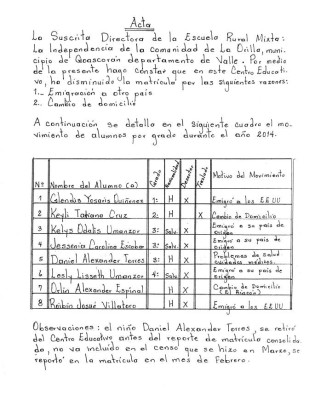 Acta
La Suscrita Directora de la Escuela Rural Mixta:
La Independencia de la Comunidad de La Orilla, muni-
cipio de Goascorán departamento de Valle. Por medio
de la presente hago constar que en este Centro Educati-
vo, ha disminuido la matrícula por las siguientes razones:
1.- Emigración a otro país
2.. Cambio de domicilio
A continuación se detalla en el siguiente cuadro el mo-
vimiento de alumnos por grado durante el año 2014.
Nº Nombre del Alumno (a) Grado Nacionalidad Desertor Traslado Motivo del Movimiento
1 Glendis Yosaris Quiñonez 1: H X Emigró a los EEUU
2 Keyli Tatiana Cruz 2: H X Cambio de Domicilio
3 Kelys Odalis Umanzor 3: Salv. X Emigró a su país de origen
4 Jessenia Caroline Escobar 3: Salv. X Emigró a su país de origen
5 Daniel Alexander Torres 3: H X Problemas de Salud cuidados médicos.
6 Lesly Lisseth Umanzor 4: Salv. X Emigró a su país de origen
7 Alexander Espinal H X Cambio de Domicilio
8 Josué Villatoro H X Emigró a los EEUU
Observaciones: el niño Daniel Alexander Torres, se retiró
del Centro Educativo antes del reporte de matrícula consolida
da, no va incluido en el censo que se hizo en Marzo, se
reportó en la matrícula en el mes de Febrero.